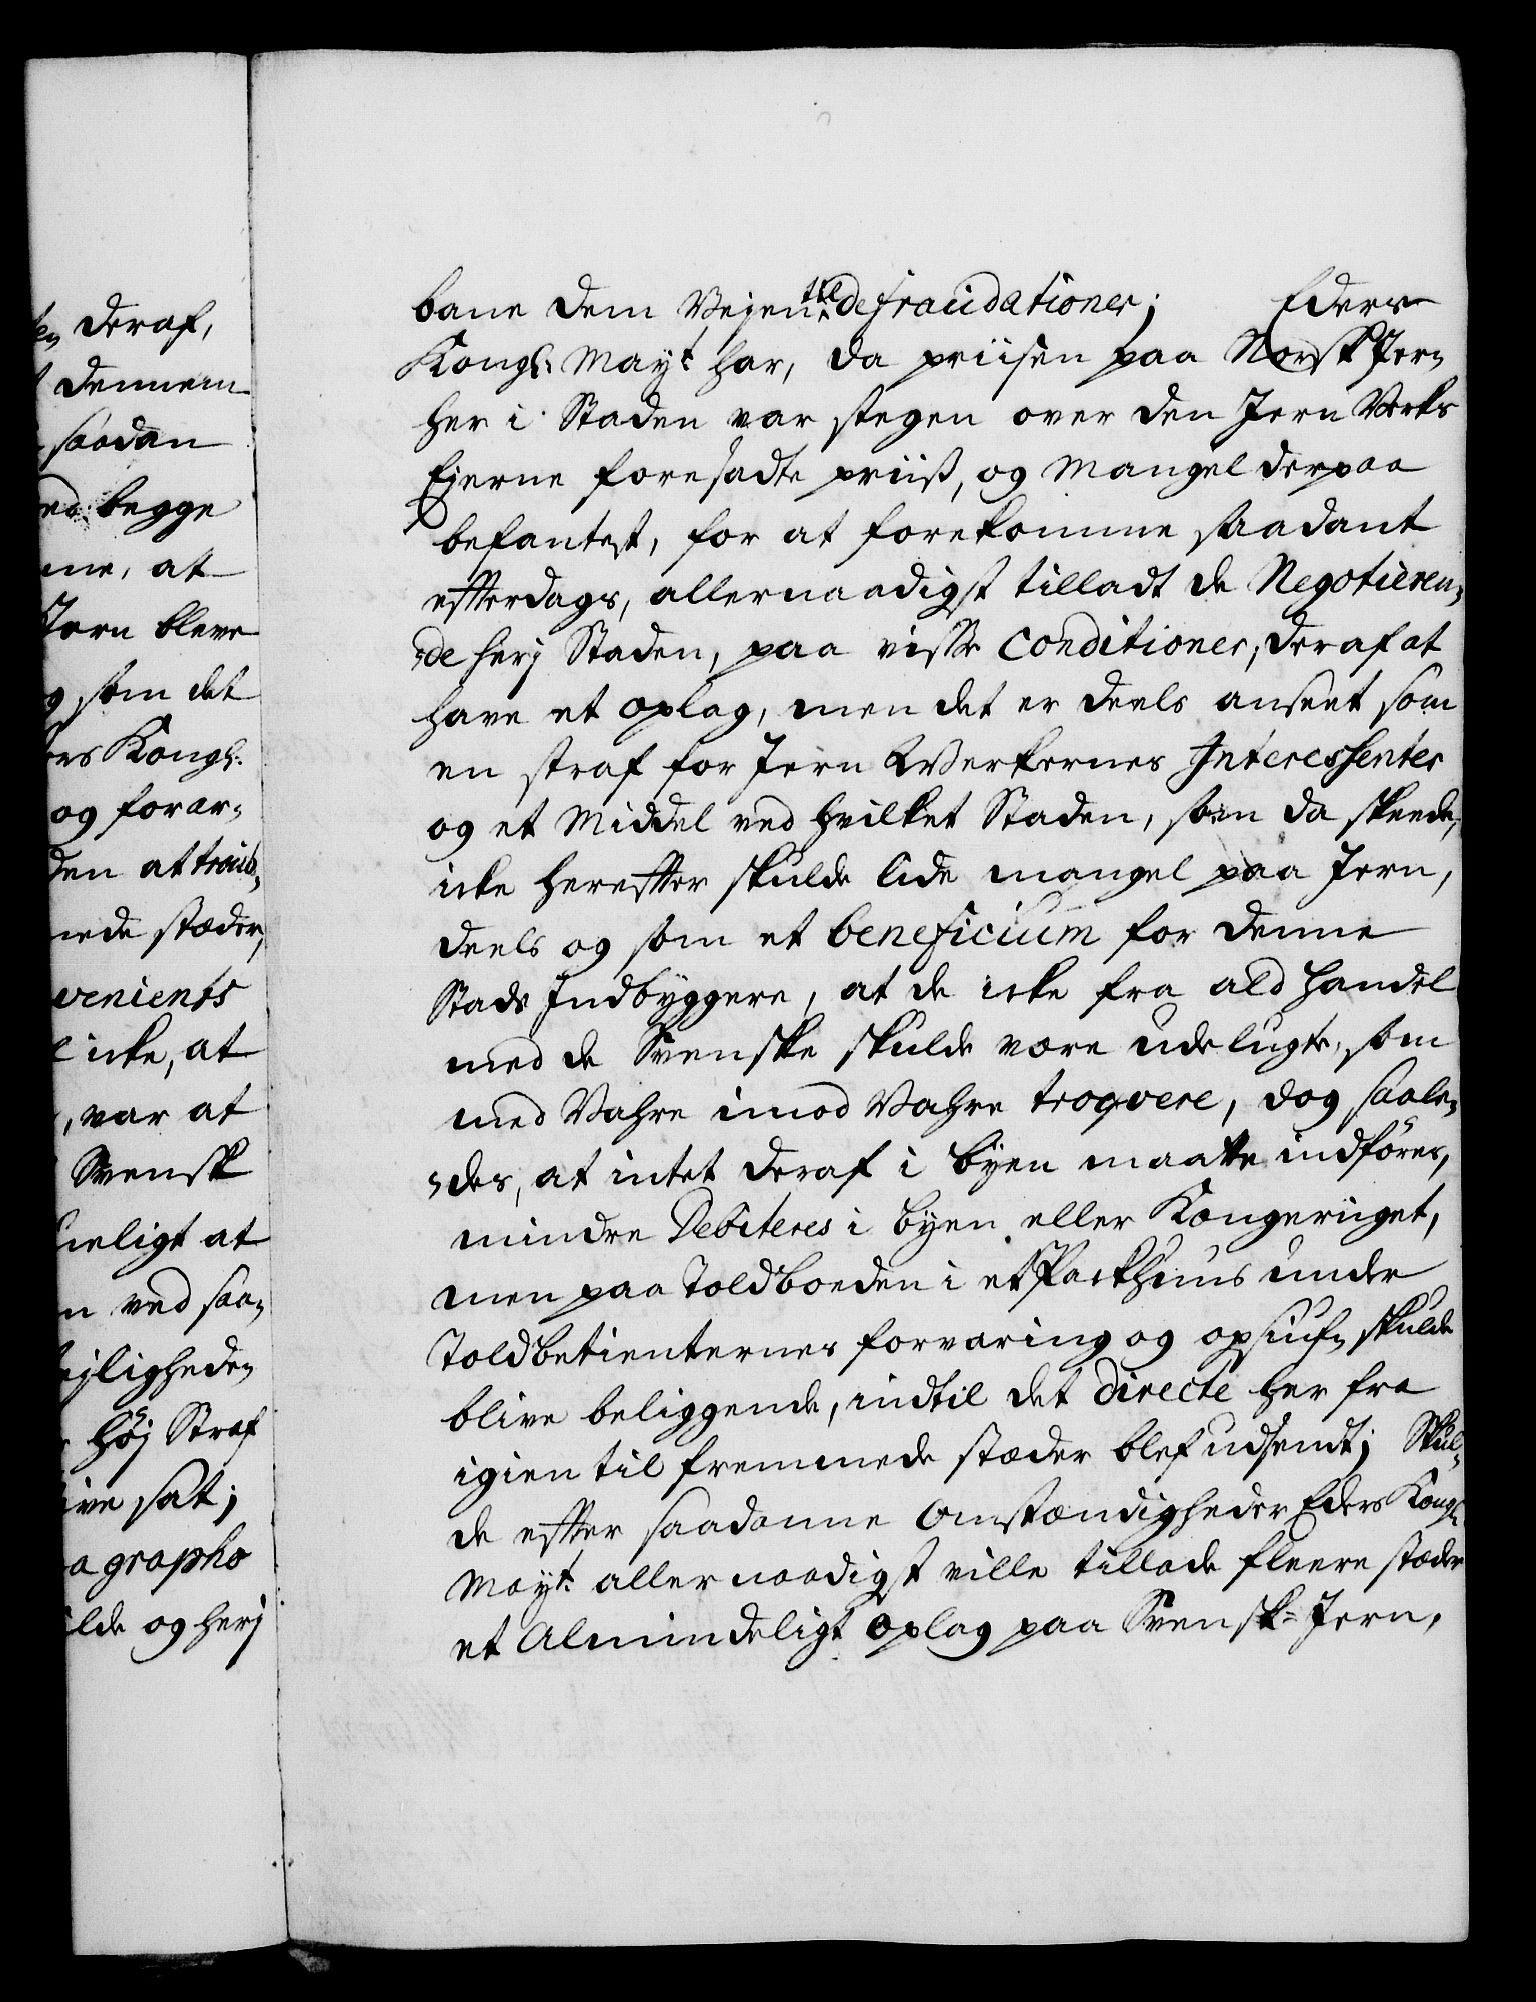 den deraf,
dennem
saadan
ved begge
ne, at
Jern bleve
som det
ers Kongl:
og forar-
den at troub-
mede stæder,
venients
icke, at
, var at
Svensk
neligt at
n ved saa-
ejligheden
Høj Straf
ive sat;
agrapho
ilde og herj
bane dem Vejen til defraudationer; Eders
Kongl: Mayt: har, da priisen paa Norsk Jern
her i Staden var stegen over den Jern Verks
Ejerne foresadte priis, og Mangel derpaa
befantest, for at forekomme saadant
effterdags, allernaadigst tilladt de Negotieren-
-de herj Staden, paa visse Conditioner, deraf at
have et oplag, men det er deels anseet som
en straf for Jern Werkernes Interessenter
og et Middel ved hvilket Staden, som da skeede,
icke hereffter skulde lide mangel paa Jern,
deels og som et beneficium for denne
Stads Indbyggere, at de icke fra ald handel
med de Svenske skulde være udelugte, som
med Vahre imod Vahre troqvere, dog saale-
-des, at intet deraf i byen maatte indføres,
mindre Debiteres i byen eller Kongeriiget,
men paa Toldboeden i et Packhuus under
Toldbetienternes forvaring og opsiufn skulde
blive beliggende, indtil det directe her fra
igien til fremmede stæder blef udsendt; Skul-
de effter saadanne Omstændigheder Eders Kongl:
Mayt: allernaadigst ville tillade fleere stæder
et Almindeligt Oplag paa Svensk-Jern,